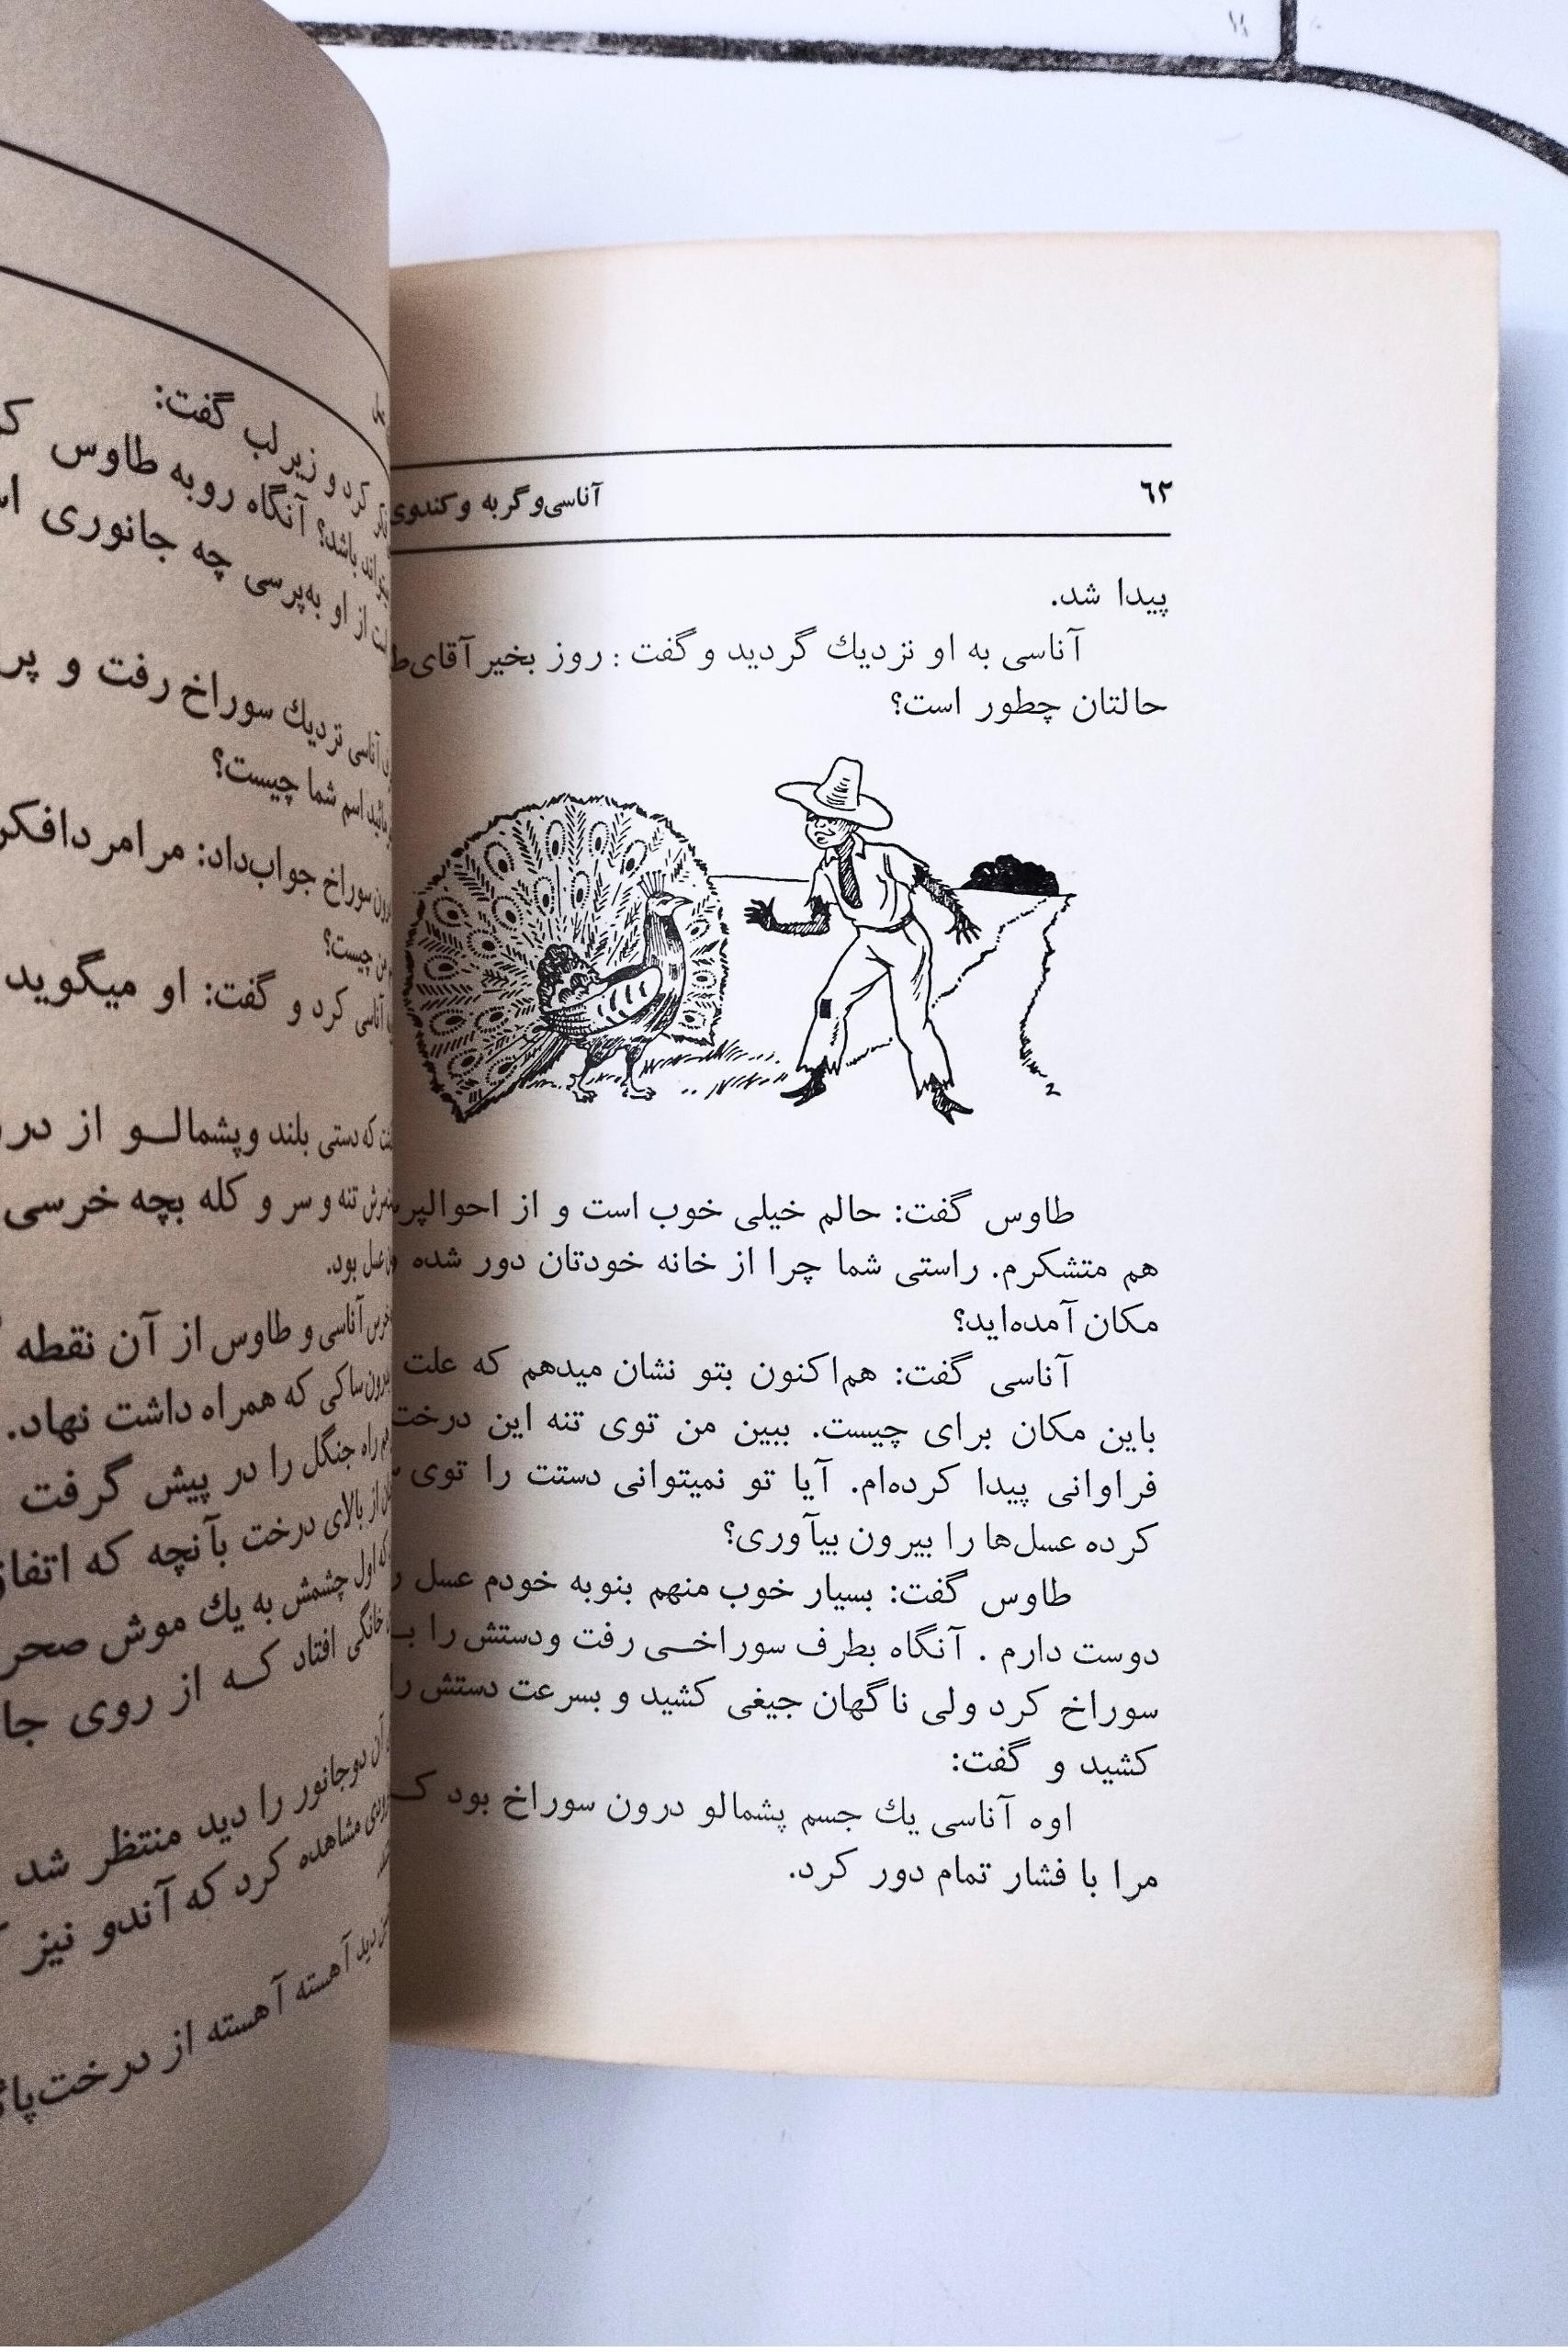 ٦٢
آناسی و گربه و کندوی
پیدا شد.
آناسی به او نزدیك گردید و گفت : روز بخیر آقای
حالتان چطور است؟
طاوس گفت: حالم خیلی خوب است و از
هم متشکرم. راستی شما چرا از خانه خودتان دور شده
مکان آمده‌اید؟
آناسی گفت: هم‌اکنون بتو نشان میدهم که علت
باین مکان برای چیست. ببین من توی تنه این درخت
فراوانی پیدا کرده‌ام. آیا تو نمیتوانی دستت را توی
کرده عسل‌ها را بیرون بیآوری؟
طاوس گفت: بسیار خوب منهم بنوبه خودم عسل
دوست دارم . آنگاه بطرف سوراخـی رفت ودستش را
سوراخ کرد ولی ناگهان جیغی کشید و بسرعت دستش را
کشید و گفت:
اوه آناسی یك جسم پشمالو درون سوراخ بود
مرا با فشار تمام دور کرد.
کرد و زیر لب گفت:
باشد؟ آنگاه روبه طاوس
از او به‌پرسی چه جانوری
آناسی نزدیك سوراخ رفت و
اسم شما چیست؟
سوراخ جواب‌داد: مرا
چیست؟
آناسی کرد و گفت: او میگوید
که دستی بلند وپشمالـو از
تنه و سر و کله بچه خرسی
عسل بود.
آناسی و طاوس از آن نقطه
ساکی که همراه داشت نهاد.
راه جنگل را در پیش گرفت
از بالای درخت بآنچه که
اول چشمش به یك موش
خانگی افتاد کـه از روی
آن دوجانور را دید منتظر شد
مشاهده کرد که آندو نیز
دید آهسته آهسته از